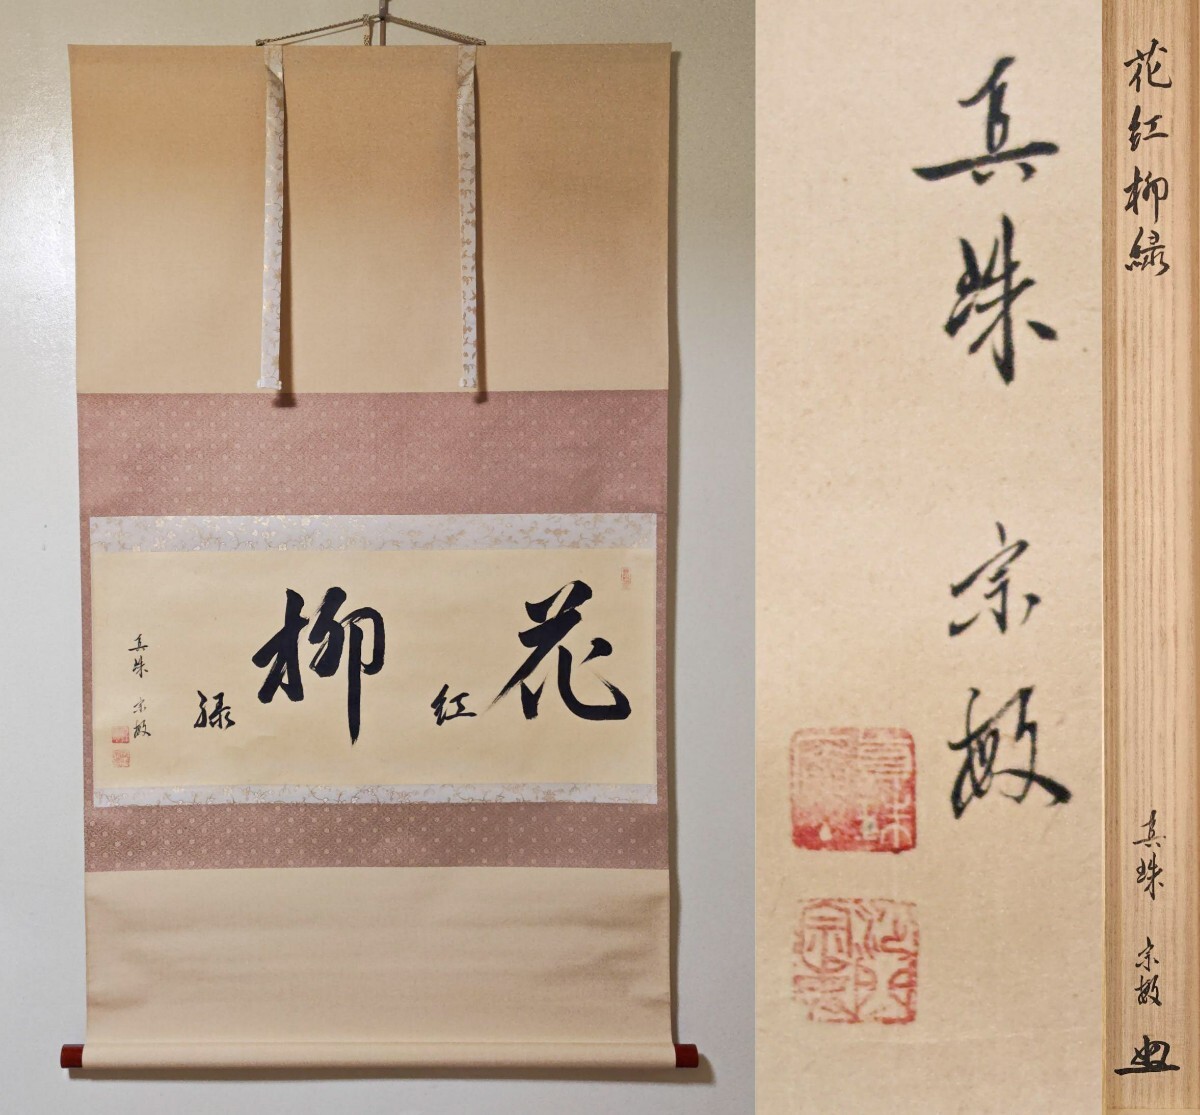 花紅
柳緑
真珠 宗敏
真珠 宗敏
花紅柳緑
真珠 宗敏